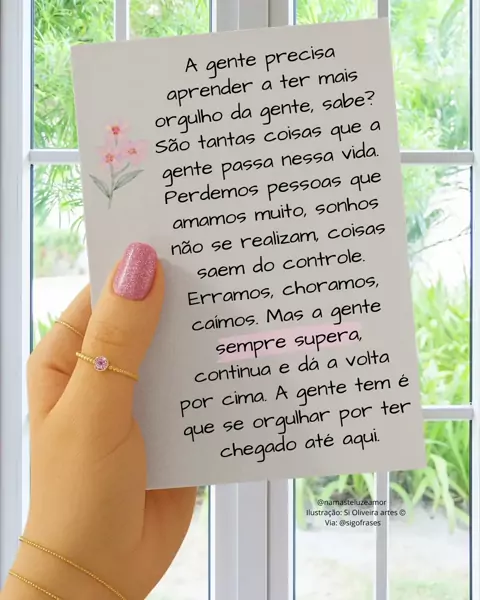 A gente precisa
aprender a ter mais
orgulho da gente, sabe?
São tantas coisas que a
gente passa nessa vida.
Perdemos pessoas que
amamos muito, sonhos
não se realizam, coisas
saem do controle.
Erramos, choramos,
caímos. Mas a gente
sempre supera,
continua e dá a volta
por cima. A gente tem é
que se orgulhar por ter
chegado até aqui.
@namasteluzeamor
Ilustração: Si Oliveira artes ©
Via: @sigofrases